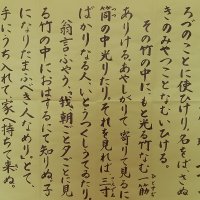 ろづのことに使ひけり。名をばさぬ
きのみやつことなむいひける。
その竹の中に、もと光る竹なむ一筋
ありける。あやしがりて、寄りて見るに、
筒の中光りたり。それを見れば、三寸
ばかりなる人、いとうつくしうてゐたり。
翁言ふやう、「我朝ごと夕ごとに見
る竹の中におはするにて知りぬ。子
になりたまふべき人なめり」とて、
手にうち入れて、家へ持ちて来ぬ。